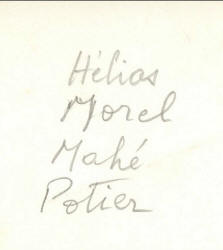 Hélias
Morel
Mahé
Potier